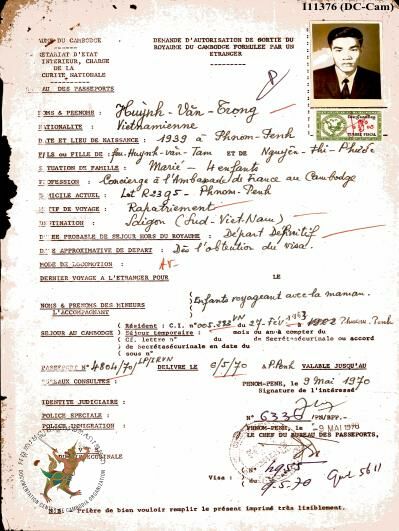 111376 (DC-Cam)
ROYAUME DU CAMBODGE
DEMANDE D'AUTORISATION DE SORTIE DU
SECRETARIAT D'ETAT
ROYAUME DU CAMBODGE FORMULEE PAR UN
INTERIEUR, CHARGE
ETRANGER
DE LA
CURITE NATIONALE
AU DES PASSEPORTS
NOMS & PRENOMS : Huỳnh-Văn-Trong
NATIONALITE : Viethnamienne
DATE ET LIEU DE NAISSANCE : 1939 à Phnom-Penh
FILS ou FILLE de : feu Huỳnh-Văn-Tam ET DE Nguyên-Thi-Phước
SITUATION DE FAMILLE : Marié - 4 enfants
PROFESSION : Concierge à l'Ambassade de France au Cambodge
DOMICILE ACTUEL : Lot R2395 - Phnom-Penh
MOTIF DE VOYAGE : Rapatriement
DESTINATION : Saigon (Sud-VietNam)
DUREE PROBABLE DE SEJOUR HORS DU ROYAUME : Départ Définitif
DATE APPROXIMATIVE DE DEPART : Dès l'obtention du visa.
MODE DE LOCOMOTION :
DERNIER VOYAGE A L'ETRANGER POUR LE
NOMS & PRENOMS DES MINEURS
L'ACCOMPAGNANT : Enfants voyageant avec la maman.
( Résident : C.I. n° du 27-Fév Phnom-Penh
SEJOUR AU CAMBODGE ( Séjour temporaire : mois du au compter du
( Cf. lettre n° du de Secrétariat ou accord
de Secrétariat en date du
( sous n°
PASSEPORT N° 4804/70/ DELIVRE LE 6/5/70 A P.Penh VALABLE JUSQU'AU
BUREAUX CONSULTES : PHNOM-PENH, le 9 Mai 1970
Signature de l'intéressé
IDENTITE JUDICIAIRE :
POLICE SPECIALE : N° /PN/BPP.-
POLICE IMMIGRATION : PHNOM-PENH, le 9 MAI 1970
LE CHEF DU BUREAU DES PASSEPORTS,
( N°
Visa : ( du 9.5.70
DOCUMENTATION CENTER OF CAMBODIA ORGANIZATION
N.B: Prière de bien vouloir remplir le présent imprimé très lisiblement.